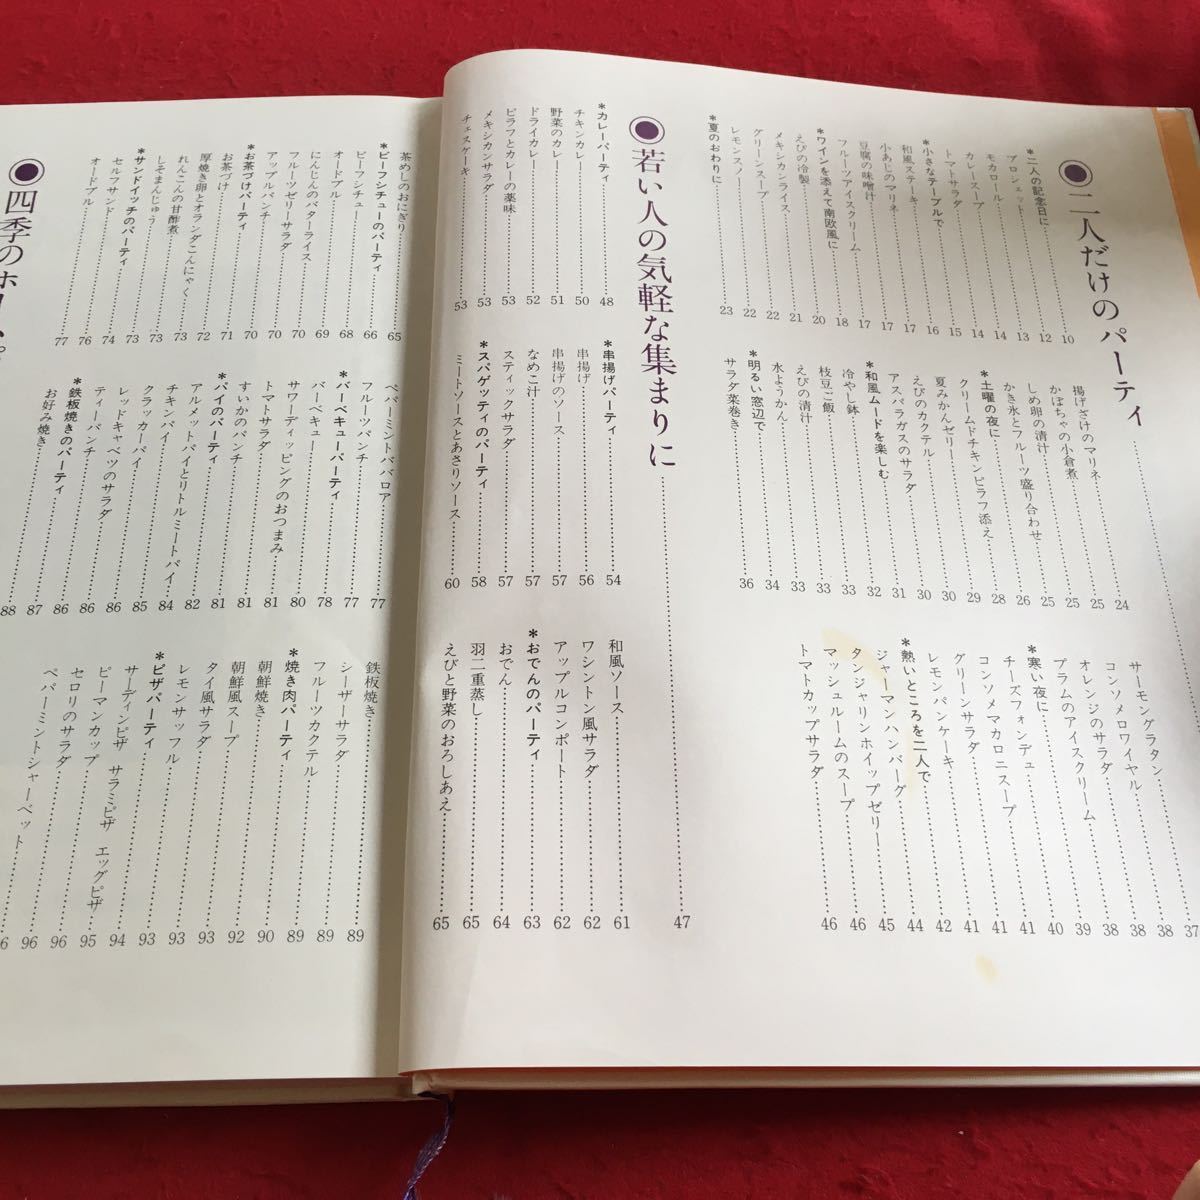 ◉二人だけのパーティ
＊二人の記念日に……10
ブロシェット……12
モカロール……13
カレースープ……14
トマトサラダ……14
＊小さなテーブルで……15
和風ステーキ……16
小あじのマリネ……17
豆腐の味噌汁……17
フルーツアイスクリーム……17
＊ワインを添えて南欧風に……18
えびの冷製……20
メキシカンライス……21
グリーンスープ……22
レモンスノー……22
＊夏のおわりに……23
揚げざけのマリネ……24
かぼちゃの小倉煮……25
しめ卵の清汁……25
かき氷とフルーツ盛り合わせ……25
＊土曜の夜に……26
クリームドチキンピラフ添え……28
夏みかんゼリー……29
えびのカクテル……30
アスパラガスのサラダ……30
＊和風ムードを楽しむ……31
冷やし鉢……32
枝豆ご飯……33
えびの清汁……33
水ようかん……33
＊明るい窓辺で……34
サラダ菜巻き……36
サーモングラタン……37
コンソメロワイヤル……38
オレンジのサラダ……38
プラムのアイスクリーム……38
＊寒い夜に……39
チーズフォンデュ……40
コンソメマカロニスープ……41
グリーンサラダ……41
レモンパンケーキ……41
＊熱いところを二人で……42
ジャーマンハンバーグ……44
タンジャリンホイップゼリー……45
マッシュルームのスープ……46
トマトカップサラダ……46
◉若い人の気軽な集まりに……47
＊カレーパーティ……48
チキンカレー……50
野菜のカレー……51
ドライカレー……52
ピラフとカレーの薬味……53
メキシカンサラダ……53
チェスケーキ……53
＊串揚げパーティ……54
串揚げ……56
串揚げのソース……57
なめこ汁……57
スティックサラダ……57
＊スパゲッティのパーティ……58
ミートソースとあさりソース……60
和風ソース……61
ワシントン風サラダ……62
アップルコンポート……62
＊おでんのパーティ……63
おでん……64
羽二重蒸し……65
えびと野菜のおろしあえ……65
茶めしのおにぎり……65
＊ビーフシチューのパーティ……66
ビーフシチュー……68
オードブル……69
にんじんのバターライス……70
フルーツゼリーサラダ……70
アップルパンチ……70
＊お茶づけパーティ……71
お茶づけ……72
厚焼き卵とオランダこんにゃく……73
れんこんの甘酢煮……73
しそまんじゅう……73
＊サンドイッチのパーティ……74
セルフサンド……76
オードブル……77
ペパーミントババロア……77
フルーツパンチ……77
＊バーベキューパーティ……78
バーベキュー……80
サワーディッピングのおつまみ……81
トマトサラダ……81
すいかのパンチ……81
＊パイのパーティ……82
アルメットパイとリトルミートパイ……84
チキンパイ……85
クラッカーパイ……86
レッドキャベツのサラダ……86
ティーパンチ……86
＊鉄板焼きのパーティ……87
お好み焼き……88
鉄板焼き……89
シーザーサラダ……89
フルーツカクテル……89
＊焼き肉パーティ……90
朝鮮焼き……92
朝鮮風スープ……93
タイ風サラダ……93
レモンサッフル……93
＊ピザパーティ……94
サーディンピザ サラミピザ エッグピザ……95
ピーマンカップ……96
セロリのサラダ……96
ペパーミントシャーベット……6
◉四季のホーム